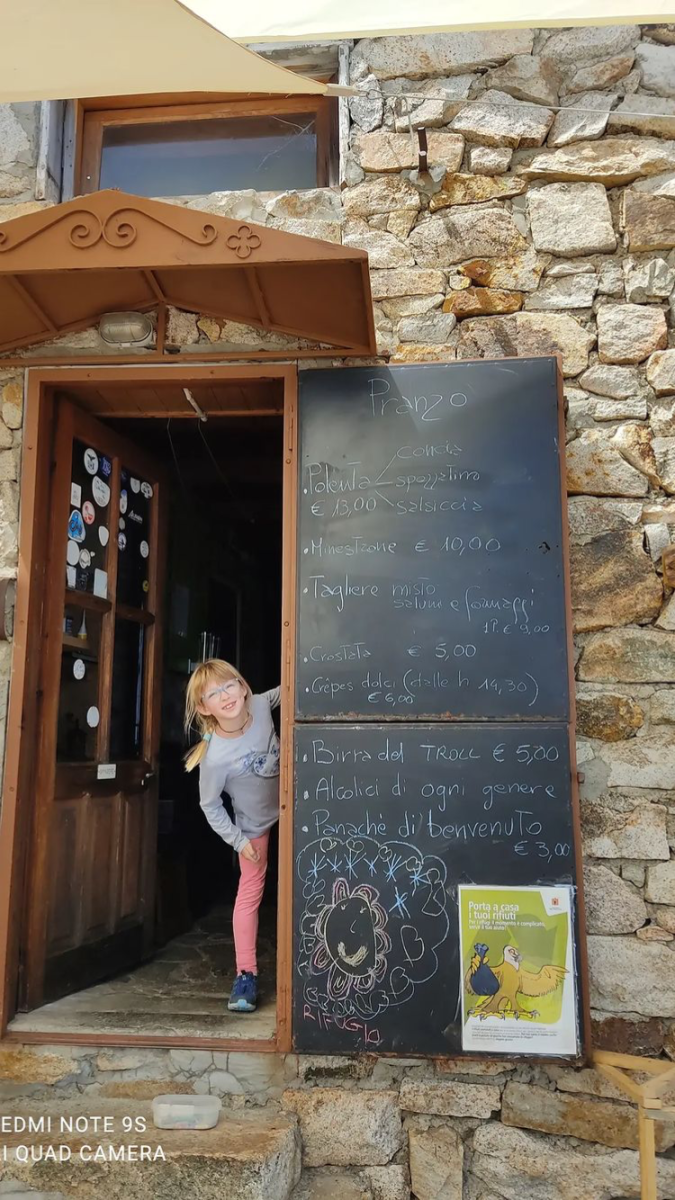 Pranzo
• Polenta concia
spezzatino
€ 13,00 salsiccia
• Minestrone € 10,00
• Tagliere misto
salumi e formaggi
1P. € 9,00
• Crostata € 5,00
• Crêpes dolci (dalle h 14,30)
€ 6,00
• Birra del TROLL € 5,00
• Alcolici di ogni genere
• Panachè di benvenuto
€ 3,00
RIFUGIO
Porta a casa
i tuoi rifiuti
EDMI NOTE 9S
I QUAD CAMERA